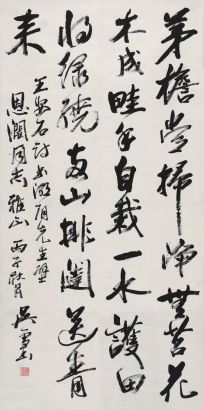 茅檐常掃淨無苔花
木成畦手自栽一水護田
將綠繞兩山排闥送青
來
王安石詩書湖陰先生壁
恩潤同志雅正 丙子秋月 吳